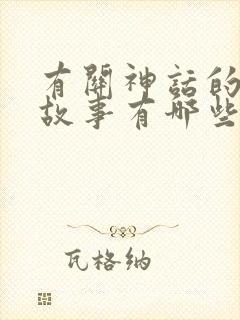 有關神話的
故事有哪些
瓦格纳